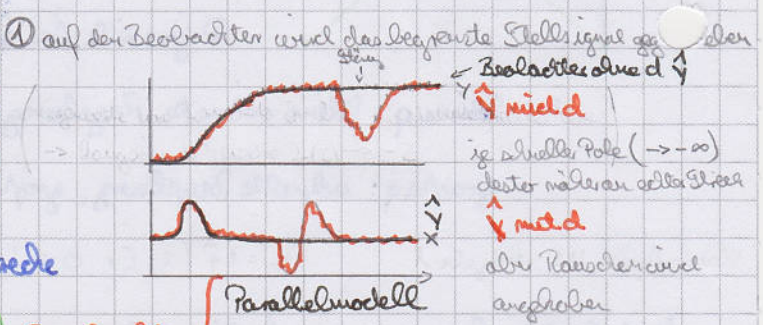 ① auf den Beobachter wird das begrenzte Stellsignal geg eben
Störung
← Beobachter ohne d ŷ
Y
Ŷ mit d
je schneller Pole (→ -∞)
desto näher an echter Strecke
Ŷ
X
X̂ mit d
aber Rauschen wird
angehoben
Parallelmodell